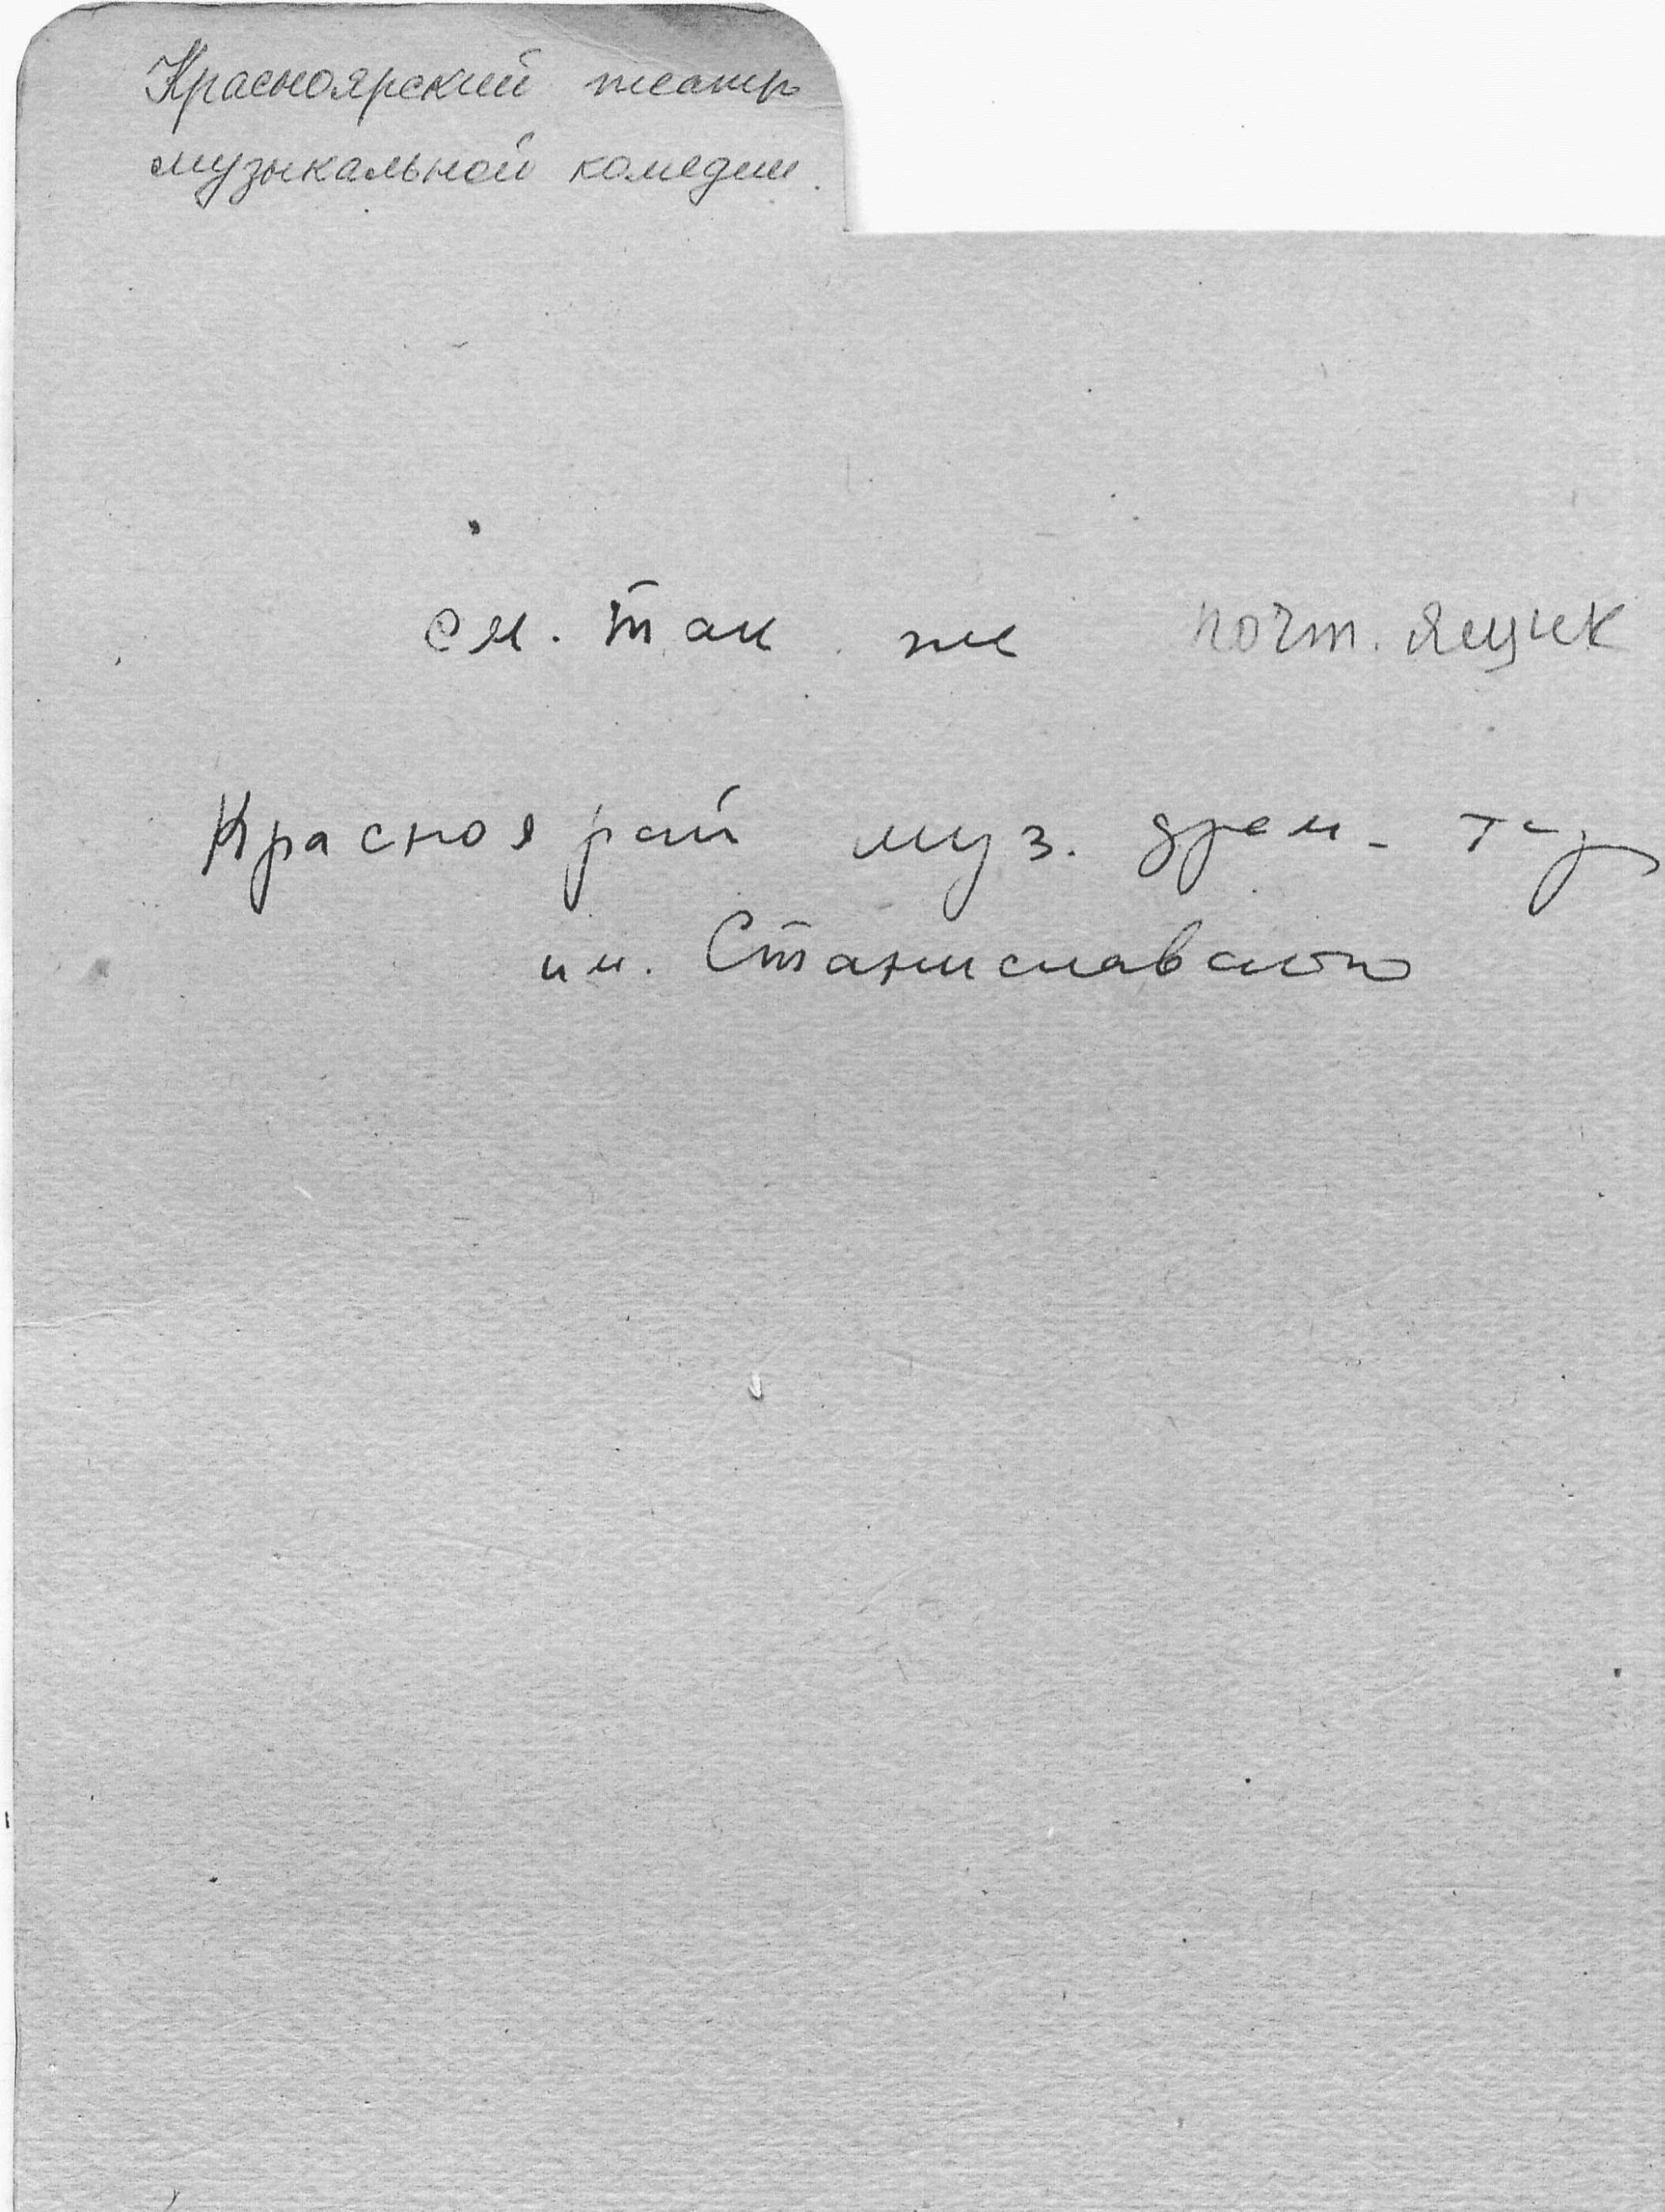 Красноярский театр
музыкальной комедии.
см. так же почт. ящик
Краснояр␣ий муз. драм. т-р
им. Станиславского